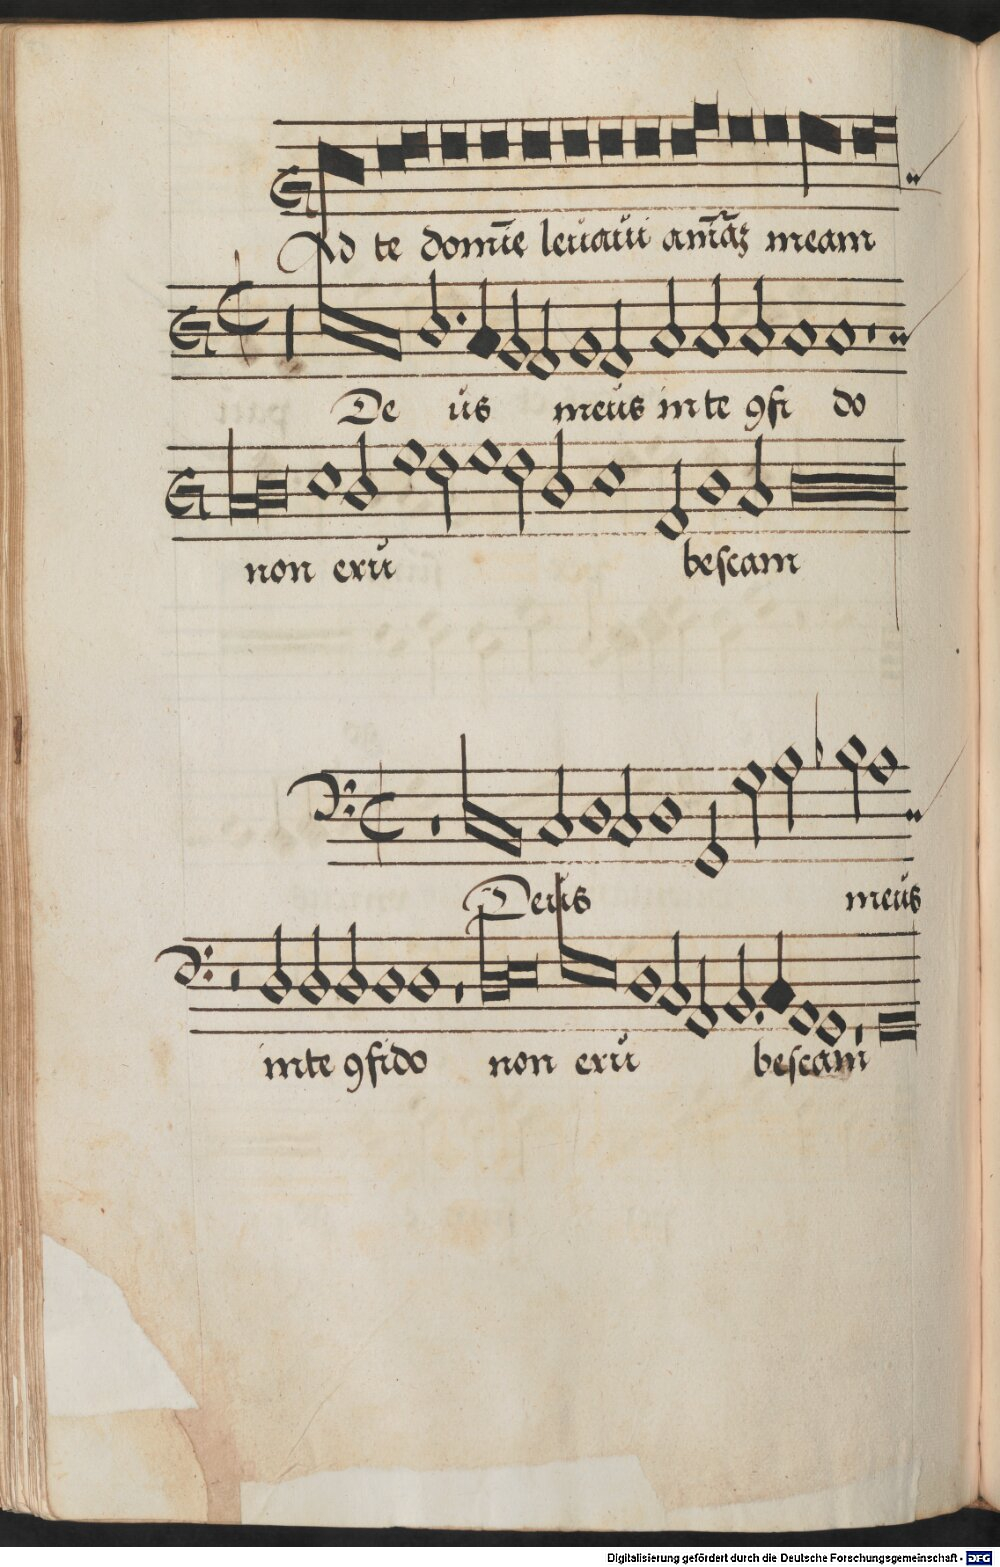 Ad te domīe levavi am̄āꝫ meam
De us meus in te ꝯfi do
non eru bescam
Deus meus
in te ꝯfido non eru bescam
Digitalisierung gefördert durch die Deutsche Forschungsgemeinschaft - DFG